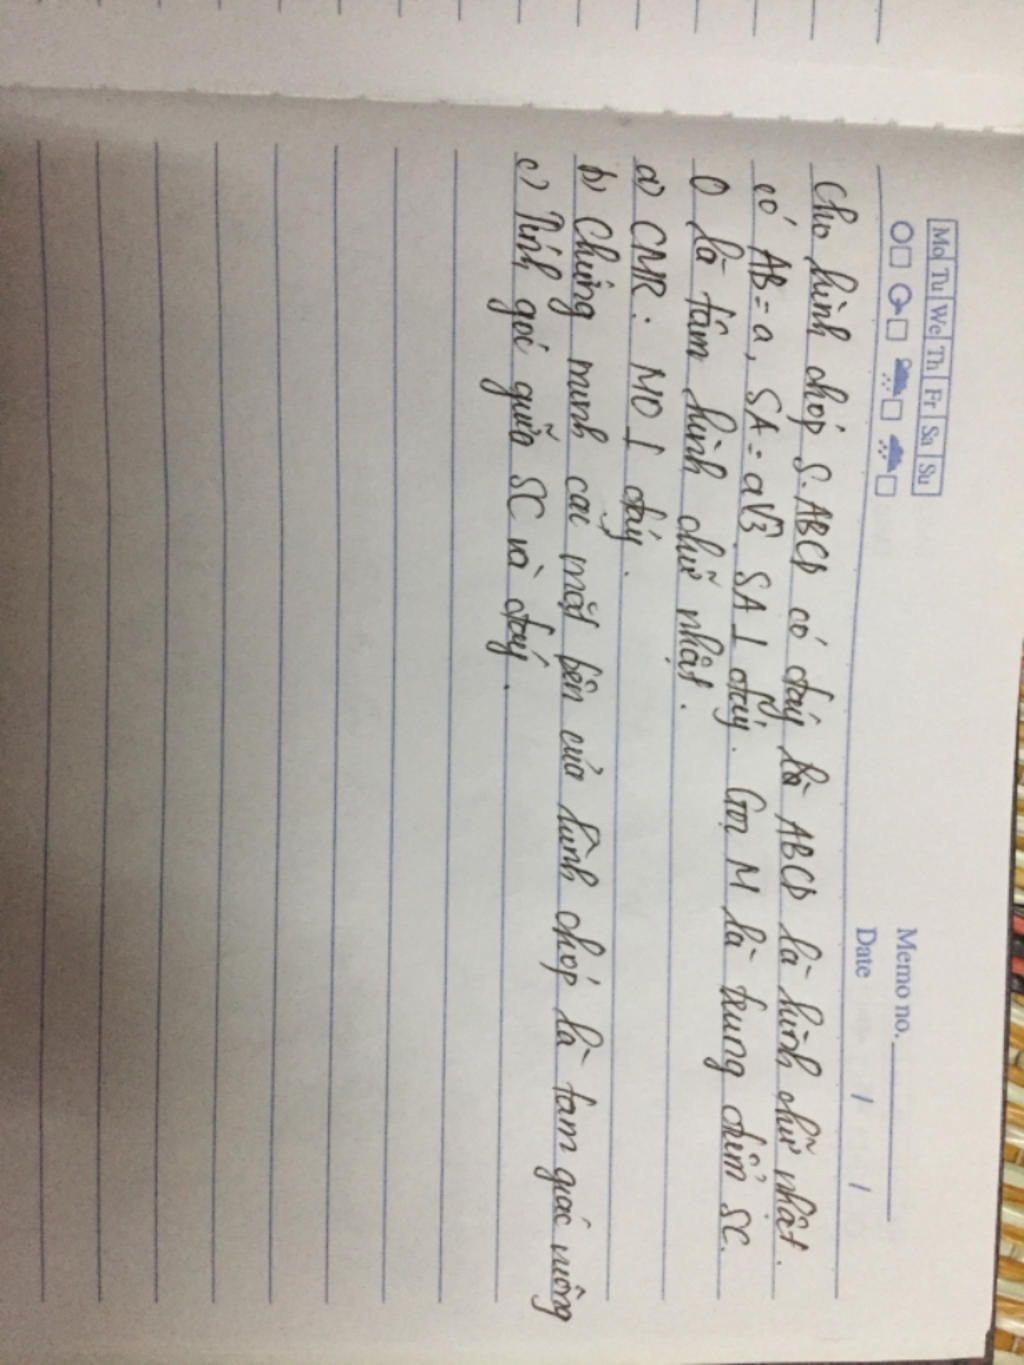 Mo Tu We Th Fr Sa Su
Memo no.
Date / /
Cho hình chóp S.ABCD có đáy là ABCD là hình chữ nhật.
có AB = a, SA = a√3. SA ⊥ đáy. Gọi M là trung điểm SC.
O là tâm hình chữ nhật.
a) CMR: MO ⊥ đáy.
b) Chứng minh các mặt bên của hình chóp là tam giác vuông
c) Tính góc giữa SC và đáy.